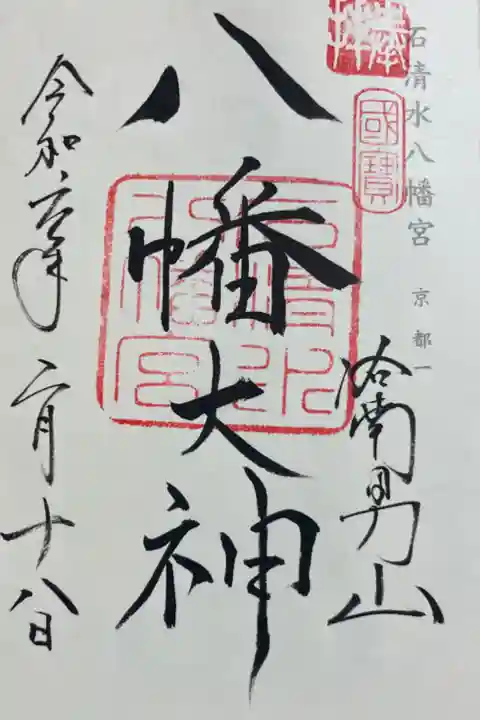 奉拝
石清水八幡宮 京都一
國寶
洛南男山
八幡大神
石清水八幡宮
令和六年二月十八日